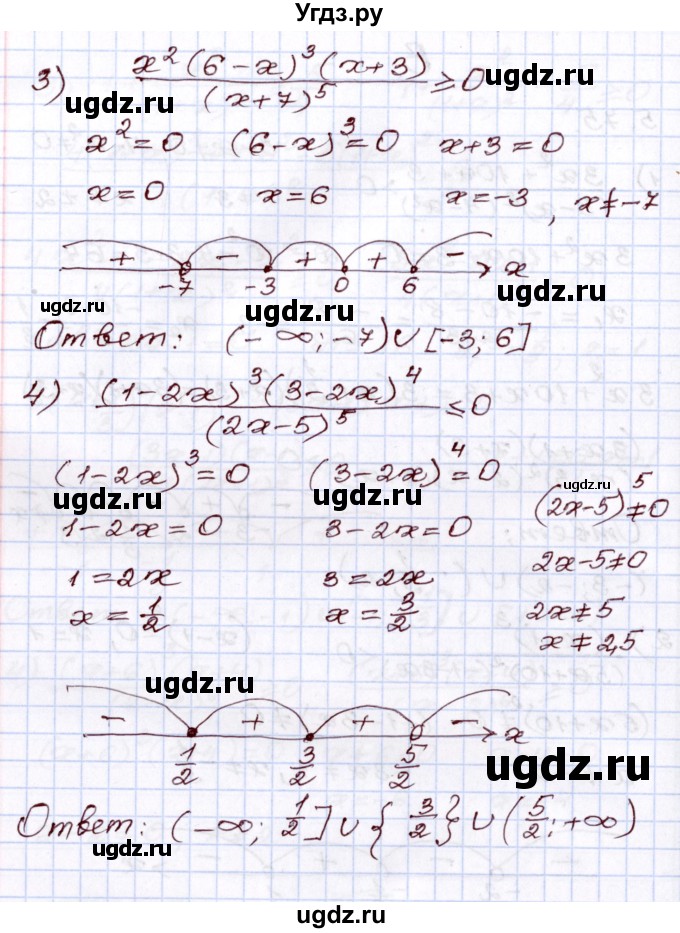 Угдз.ру
3) x²(6-x)³(x+3) / (x+7)⁵ ≥ 0
ugdz.ru ugdz.ru
x²=0 (6-x)³=0 x+3=0
ugdz.ru ugdz.ru
x=0 x=6 x=-3, x≠-7
+ - + + - x
-7 -3 0 6
ugdz.ru ugdz.ru ugdz.ru
Ответ: (-∞;-7)∪[-3;6]
4) (1-2x)³(3-2x)⁴ / (2x-5)⁵ ≤ 0
ugdz.ru ugdz.ru
(1-2x)³=0 (3-2x)⁴=0 (2x-5)⁵≠0
ugdz.ru ugdz.ru ugdz.ru
1-2x=0 3-2x=0 2x-5≠0
1=2x 3=2x 2x≠5
x=1/2 x=3/2 x≠2,5
ugdz.ru ugdz.ru
ugdz.ru
- + + - x
1/2 3/2 5/2
ugdz.ru
Ответ: (-∞; 1/2]∪{3/2}∪(5/2;+∞)
ugdz.ru ugdz.ru
ugdz.ru